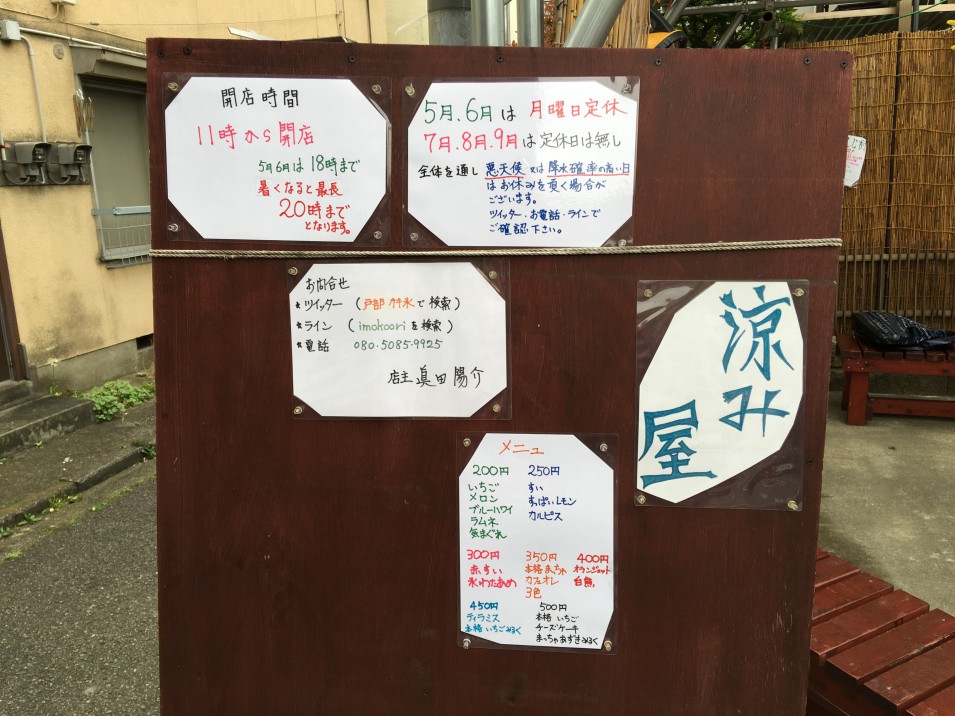 開店時間
11時から開店
5月6月は18時まで
暑くなると最長
20時まで
となります。
5月.6月は月曜日定休
7月.8月.9月は定休日は無し
全体を通し 悪天候又は降水確率の高い日
はお休みを頂く場合が
ございます。
ツイッター・お電話・ラインで
ご確認下さい。
お問合せ
★ツイッター (戸部 かき氷で検索)
★ライン (imokooriを検索)
★電話 080-5085-9925
店主 眞田陽介
涼み
屋
メニュー
200円
いちご
メロン
ブルーハワイ
ラムネ
気まぐれ
250円
すい
すっぱいレモン
カルピス
300円
赤すい
氷わたあめ
350円
本格まっちゃ
カフェオレ
3色
400円
オランジット
白熊
450円
ティラミス
本格いちごみるく
500円
本格いちご
チーズケーキ
まっちゃあずきみるく